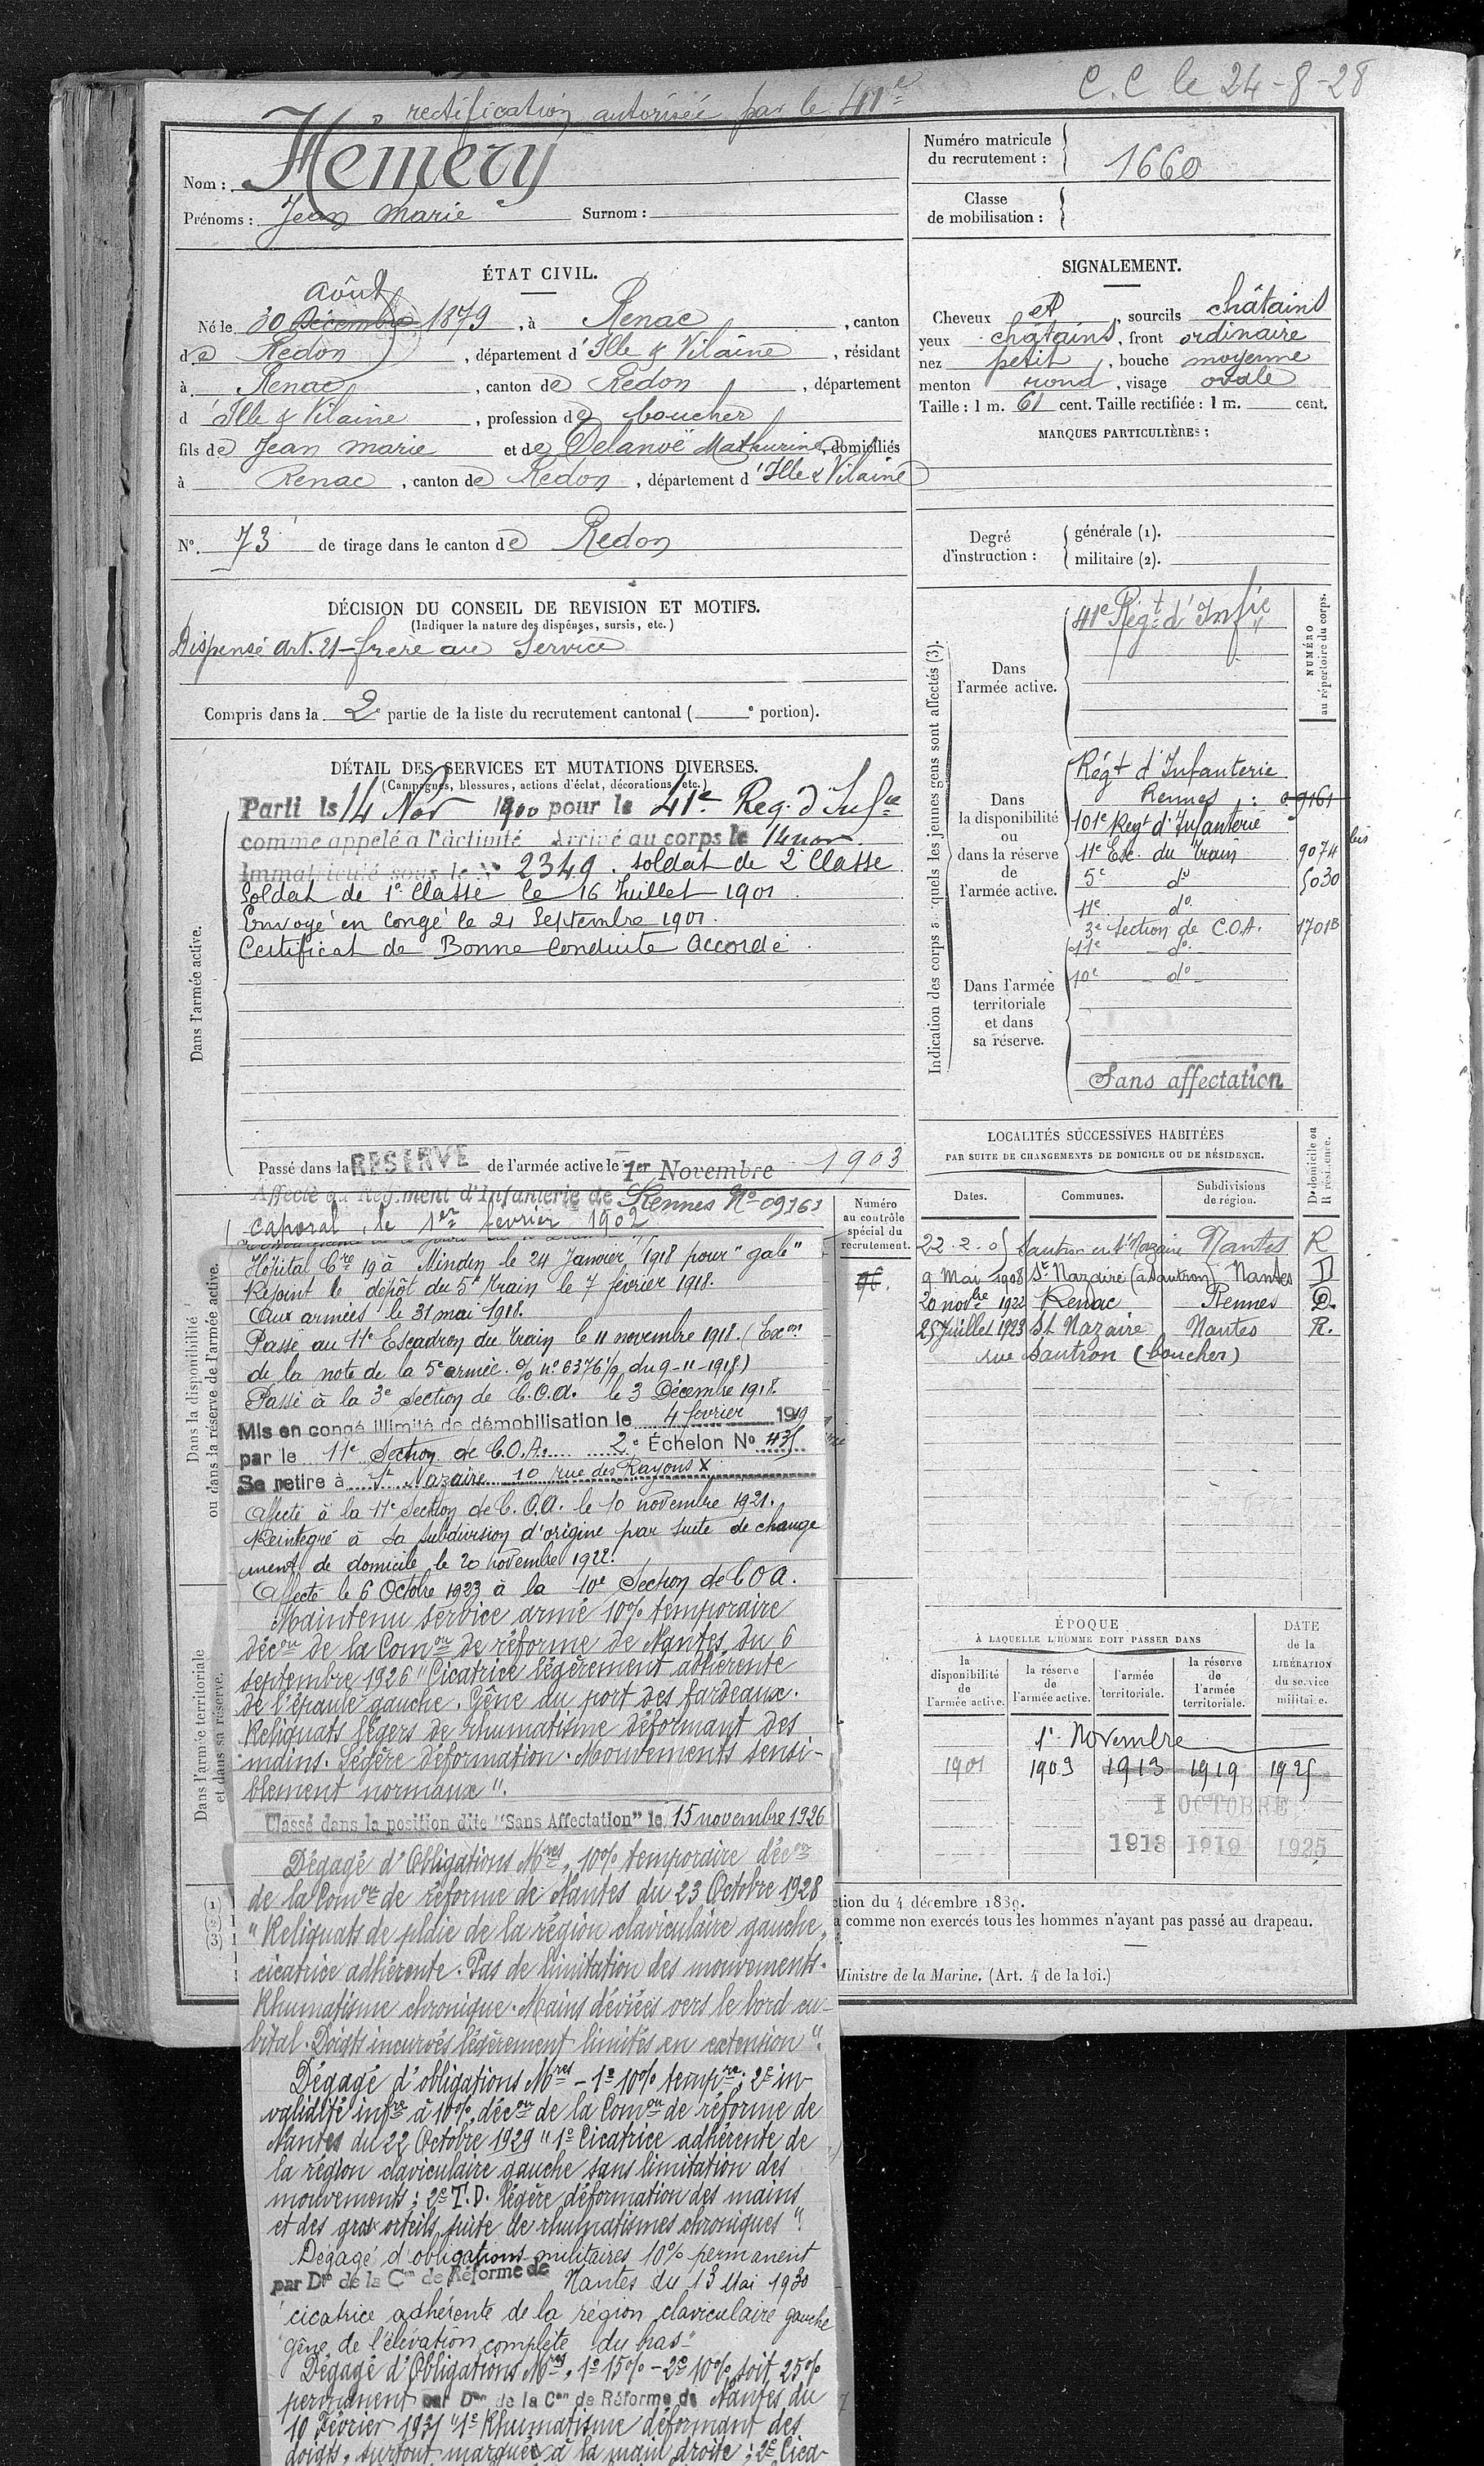 C.C le 24-8-28
rectification autorisée par le 41e
Nom : Hemery
Prénoms : Jean Marie Surnom :
Numéro matricule
du recrutement : 1660
Classe
de mobilisation :
ÉTAT CIVIL.
Août
Né le 30 Décembre 1879, à Renac, canton
de Redon, département d'Ille & Vilaine, résidant
à Renac, canton de Redon, département
d'Ille & Vilaine, profession de boucher
fils de Jean Marie et de Delanoë Mathurine, domiciliés
à Renac, canton de Redon, département d'Ille & Vilaine
N°. 73 de tirage dans le canton de Redon
SIGNALEMENT.
Cheveux et, sourcils châtains
yeux châtains, front ordinaire
nez petit, bouche moyenne
menton rond, visage ovale
Taille : 1 m. 61 cent. Taille rectifiée : 1 m. cent.
MARQUES PARTICULIÈRES :
Degré
d'instruction :
générale (1).
militaire (2).
DÉCISION DU CONSEIL DE REVISION ET MOTIFS.
(Indiquer la nature des dispenses, sursis, etc.)
Dispensé Art. 21 - frère au Service
Compris dans la 2e partie de la liste du recrutement cantonal ( e portion).
DÉTAIL DES SERVICES ET MUTATIONS DIVERSES.
(Campagnes, blessures, actions d'éclat, décorations, etc.)
Dans l'armée active.
Parti le 14 Nov 1900 pour le 41e Reg. d'Infie
comme appelé à l'activité Arrivé au corps le 14 nov.
Immatriculé sous le N° 2349. soldat de 2e Classe
Soldat de 1e Classe le 16 Juillet 1901.
Envoyé en congé le 21 Septembre 1901.
Certificat de Bonne Conduite Accordé.
Passé dans la RESERVE de l'armée active le 1er Novembre 1903
Indication des corps auxquels les jeunes gens sont affectés (3).
NUMÉRO
au répertoire du corps.
Dans
l'armée active.
41e Régt d'Infie
Dans
la disponibilité
ou
dans la réserve
de
l'armée active.
Régt d'Infanterie
Rennes : 09161
101e Regt d'Infanterie
11e Esc. du Train 9074 bis
5e do 5030
11e do
3e Section de C.O.A. 1701B
11e do
10e do
Dans l'armée
territoriale
et dans
sa réserve.
Sans affectation
LOCALITÉS SUCCESSIVES HABITÉES
PAR SUITE DE CHANGEMENTS DE DOMICILE OU DE RÉSIDENCE.
Dates. Communes. Subdivisions
de région.
D domicile ou
R résidence.
22.2.05 Sautron en St Nazaire Nantes R
9 Mai 1908 St Nazaire (a Sautron) Nantes D
20 novbre 1922 Renac Rennes D.
25 Juillet 1923 St Nazaire Nantes R.
rue Sautron (boucher)
Affecté au Régiment d'Infanterie de Rennes No 09161
caporal, le 1er février 1902
Numéro
au contrôle
spécial du
recrutement.
96.
Dans la disponibilité
ou dans la réserve de l'armée active.
Hôpital Cre 19 à Minden le 24 Janvier 1918 pour "gale"
Rejoint le dépôt du 5e train le 7 février 1918.
Aux armées le 31 mai 1918.
Passé au 11e Escadron du train le 11 novembre 1918. (Exon
de la note de la 5e armée. % no 6376 1/9 du 9-11-1918)
Passé à la 3e Section de C.O.A. le 3 Décembre 1918.
Mis en congé illimité de démobilisation le 4 février 1919
par le 11e Section de C.O.A. 2e Échelon No 435
Se retire à St Nazaire 10 rue des Rayons X
Affecté à la 11e Section de C.O.A. le 10 novembre 1921.
Réintégré à sa subdivision d'origine par suite de change
ment de domicile le 20 novembre 1922.
Affecté le 6 Octobre 1923 à la 10e Section de C O A.
Dans l'armée territoriale
et dans sa réserve.
Maintenu service armé 10% temporaire
décon de la Comon de réforme de Nantes du 6
septembre 1926 "Cicatrice légèrement adhérente
de l'épaule gauche. Gêne du port des fardeaux.
Reliquats légers de rhumatisme déformant des
mains. Légère déformation. Mouvements sensi-
blement normaux".
Classé dans la position dite "Sans Affectation" le 15 novembre 1926
Dégagé d'Obligations Mres, 10% temporaire décon
de la Comon de réforme de Nantes du 23 Octobre 1928
"Reliquats de plaie de la région claviculaire gauche,
cicatrice adhérente. Pas de limitation des mouvements.
Rhumatisme chronique. Mains déviées vers le bord cu-
bital. Doigts incurvés légèrement limités en extension".
Dégagé d'obligations Mres - 1o 10% tempre; 2o in-
validité infre à 10%, décon de la Comon de réforme de
Nantes du 22 Octobre 1929 "1o Cicatrice adhérente de
la région claviculaire gauche sans limitation des
mouvements; 2o T.D. légère déformation des mains
et des gros orteils suite de rhumatismes chroniques".
Dégagé d'obligations militaires 10% permanent
par Don de la Con de Réforme de Nantes du 13 Mai 1930
cicatrice adhérente de la région claviculaire gauche
gêne de l'élévation complète du bras"
Dégagé d'Obligations Mres, 1o 15% - 2o 10% soit 25%
permanent par Don de la Con de Réforme de Nantes du
10 Février 1931 "1o Rhumatisme déformant des
doigts, surtout marqué à la main droite; 2o Cica-
ÉPOQUE
À LAQUELLE L'HOMME DOIT PASSER DANS
la
disponibilité
de
l'armée active.
la réserve
de
l'armée active.
l'armée
territoriale.
la réserve
de
l'armée
territoriale.
DATE
de la
LIBÉRATION
du service
militaire.
1er Novembre
1901 1903 1913 1919 1925
1 OCTOBRE
1913 1919 1925
(1)
(2)
(3)
ction du 4 décembre 1889.
a comme non exercés tous les hommes n'ayant pas passé au drapeau.
Ministre de la Marine. (Art. 4 de la loi.)